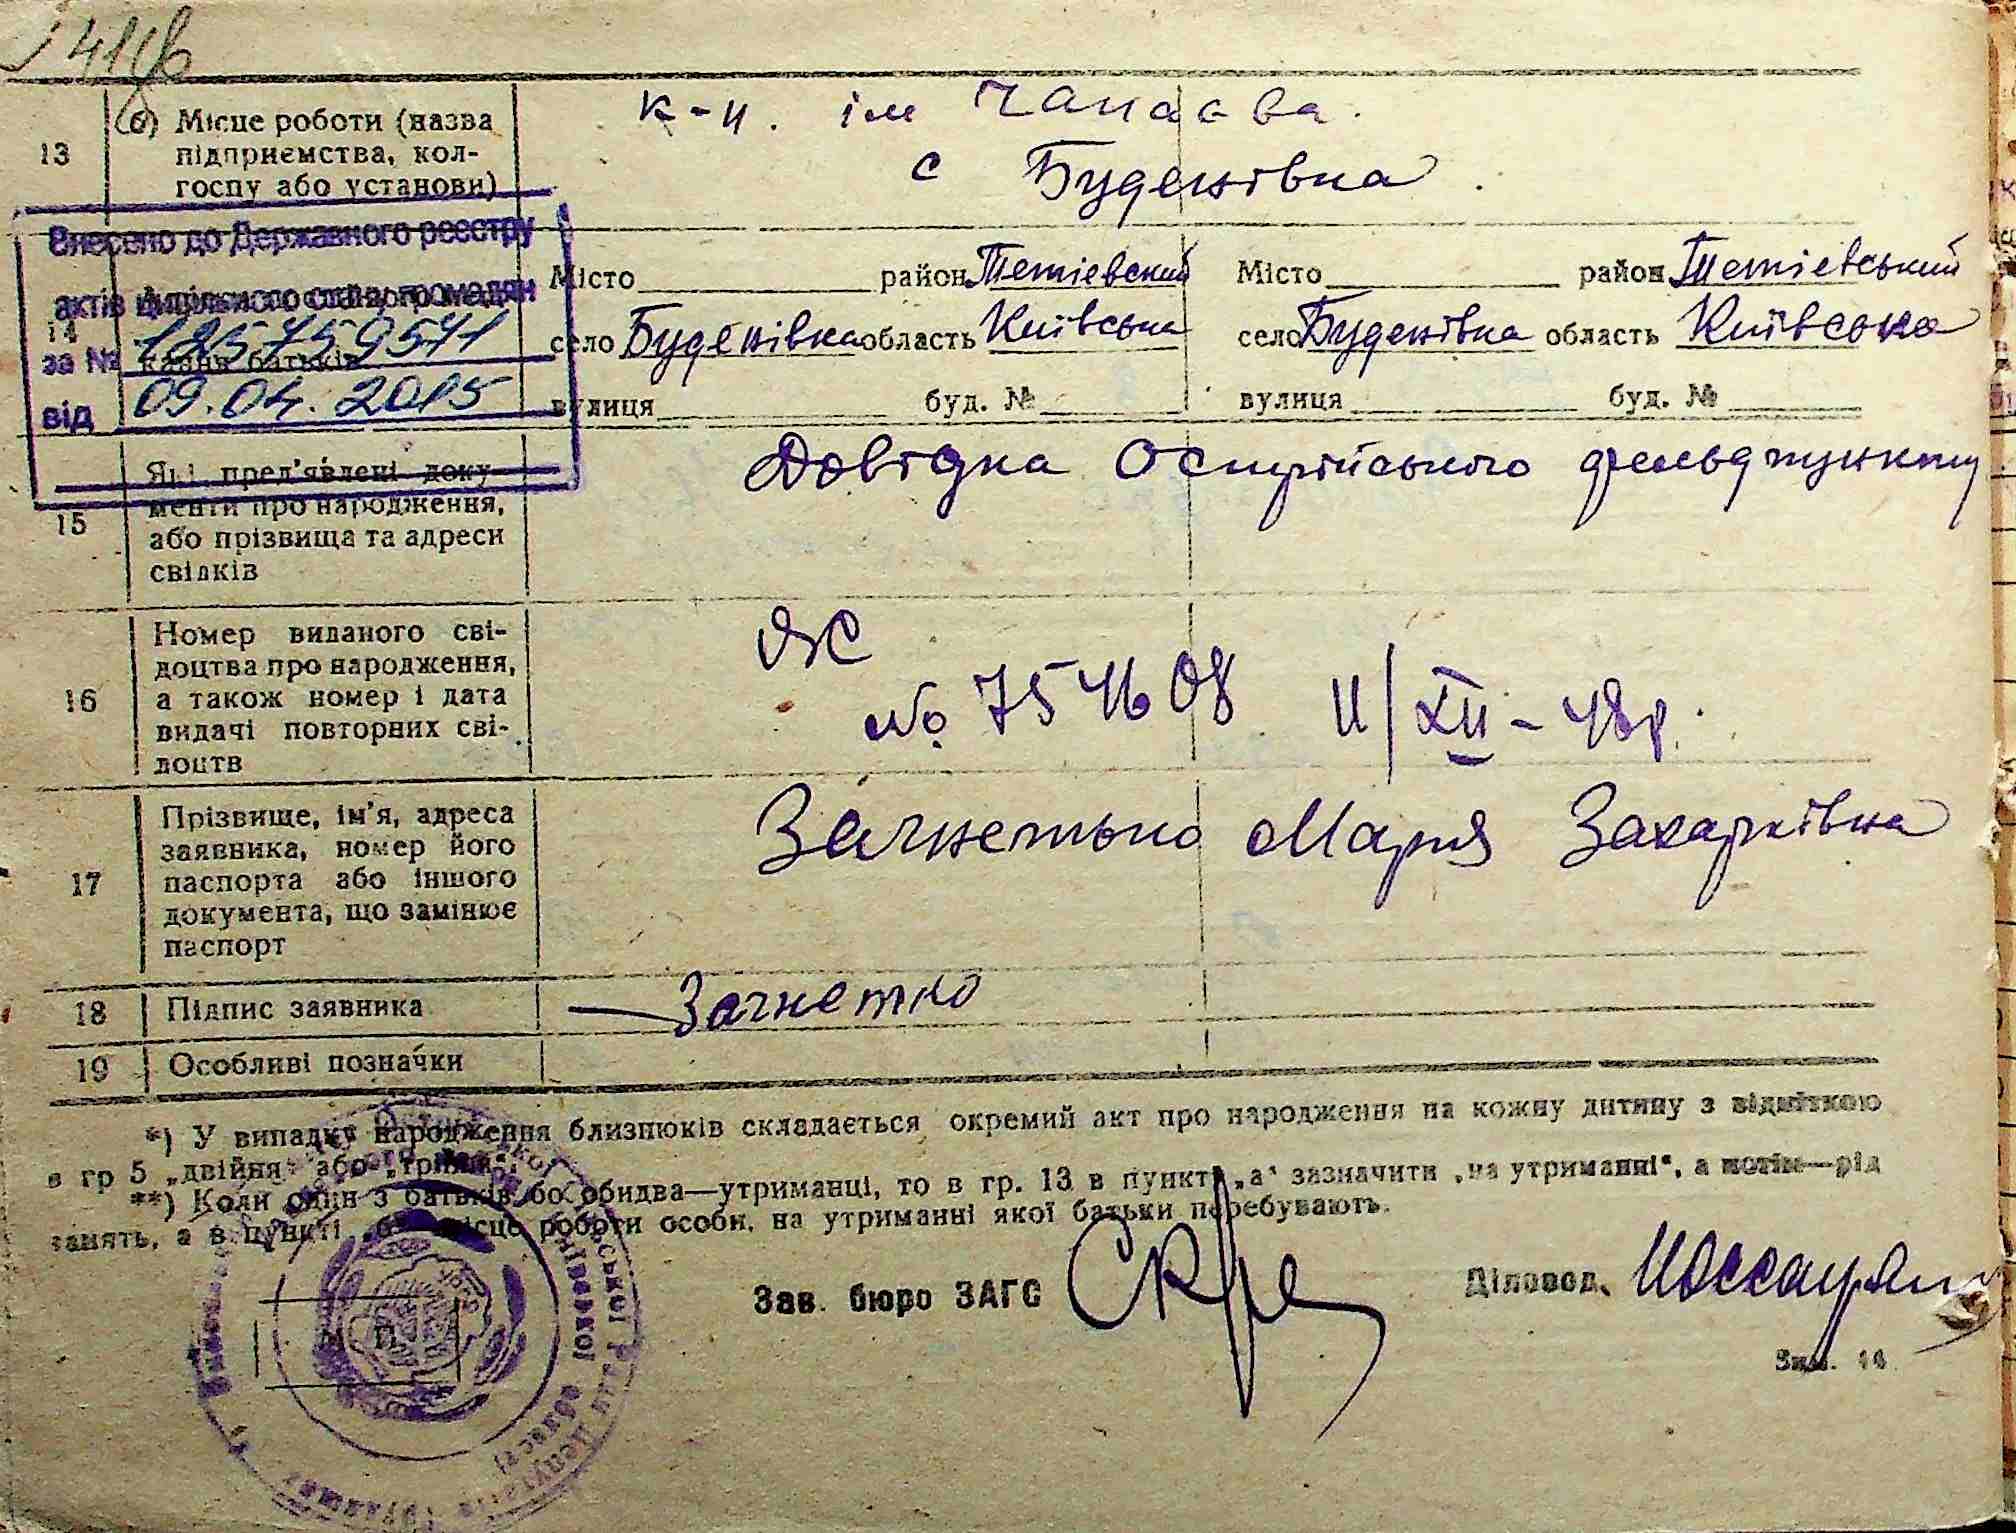 13 б) Місце роботи (назва
підприємства, кол-
госпу або установи)
к-п. ім Чапаєва.
с Буденівка.
Внесено до Державного реєстру
актів цивільного стану громадян
за №
від 09.04.2015
14
кання батьків
Місто район Тетієвский
село Буденівка область Київська
вулиця буд. №
Місто район Тетієвський
село Буденівка область Київська
вулиця буд. №
15 Які пред'явлені доку-
менти про народження,
або прізвища та адреси
свідків
Довідка фельдпункту
16 Номер виданого сві-
доцтва про народження,
а також номер і дата
видачі повторних сві-
доцтв
ЯС
№ 754608 11/XII-48р.
17 Прізвище, ім'я, адреса
заявника, номер його
паспорта або іншого
документа, що замінює
паспорт
Марія Захарківна
18 Підпис заявника
Загнетко
19 Особливі позначки
*) У випадку народження близнюків складається окремий акт про народження на кожну дитину з відміткою
в гр 5 „двійня“ або „трійня“.
**) Коли один з батьків або обидва—утриманці, то в гр. 13 в пункті „а“ зазначити „на утриманні“, а потім—рід
занять, а в пункті „б“ місце роботи особи, на утриманні якої батьки перебувають.
Зав. бюро ЗАГС
Діловод
М П
Зам. 44